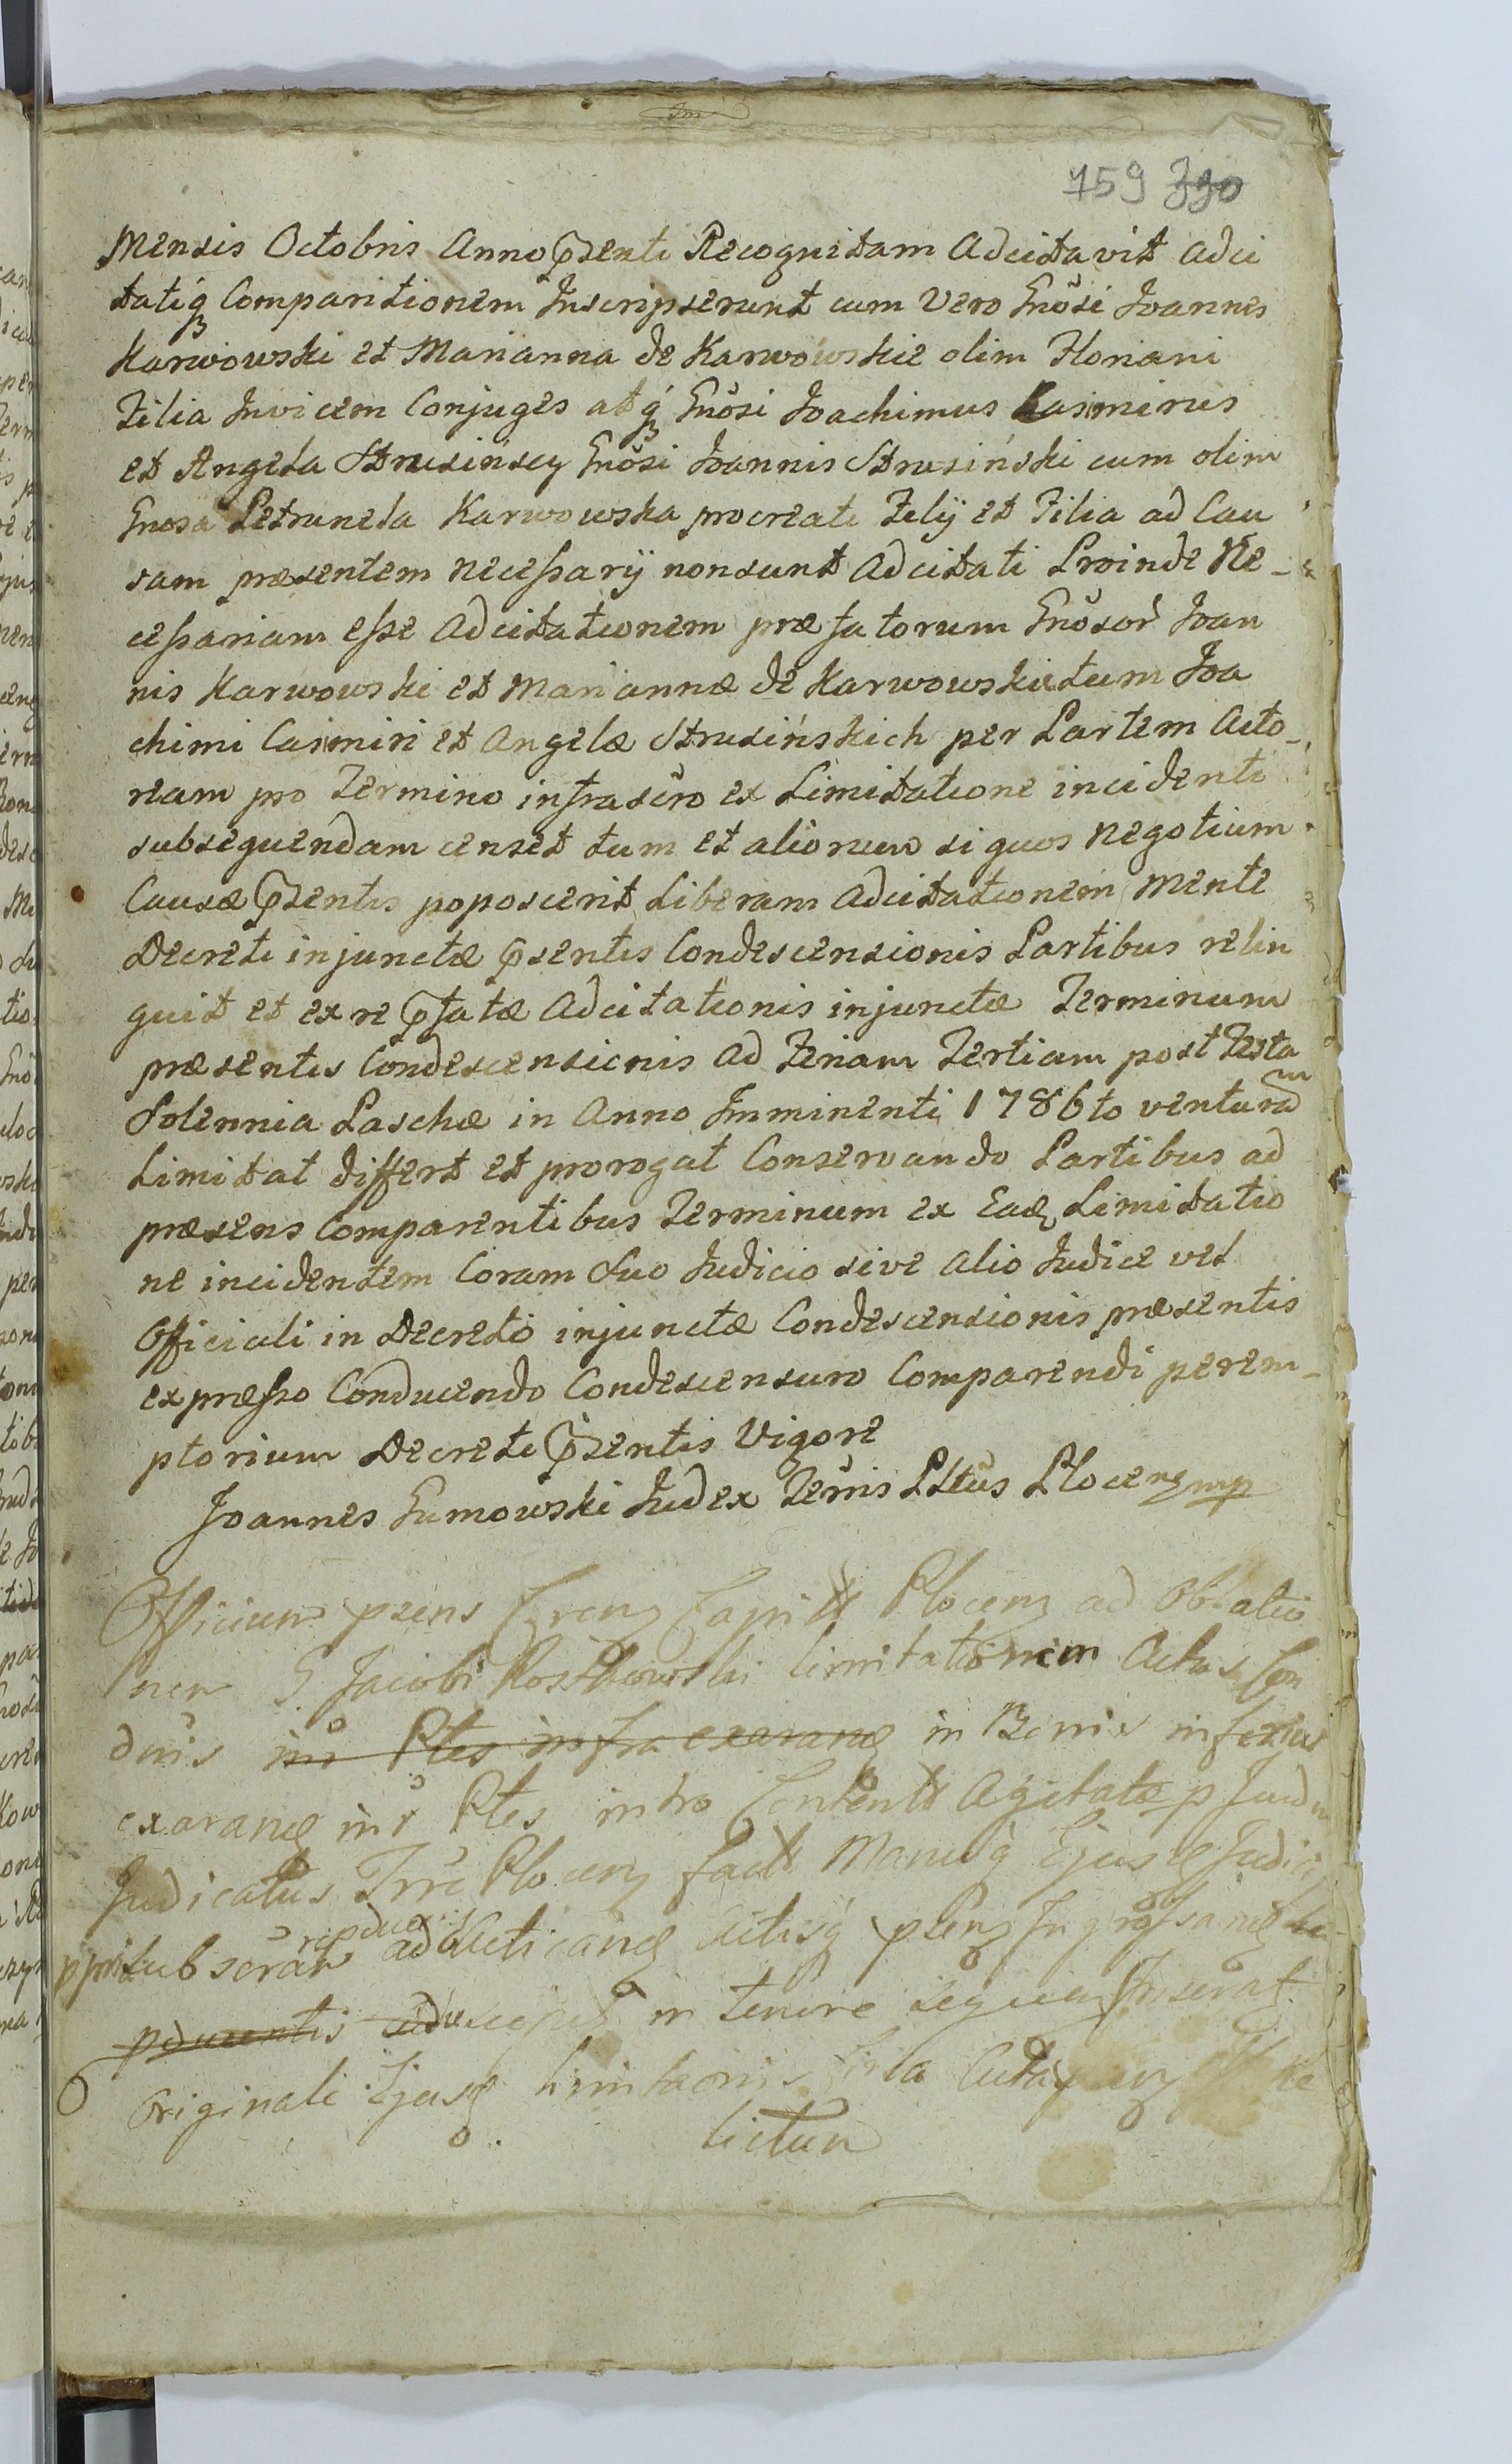 759 390
Mensis Octobris Anno p̄senti Recognitam Adcitavit adci
tatiq̃ Comparitionem Inscripserunt cum Vero Gnosi Joannes
Karwowski et Marianna de Karwowskie olim Floriani
Filia Invicem Conjuges atq̃ Gnosi Joachimus Casimirus
et Angela Strusińscy Gnosi Joannis Strusiński cum olim
Gnosa Petrunela Karwowska procreati Filij et Filia ad Cau
sam præsentem necessarij non sunt Adcitati Proinde Ne-
cessariam esse Adcitationem præfatorum Gnosor Joan
nis Karwowski et Mariannæ de Karwowskie tum Joa
chimi Casimiri et Angelæ Strusińskich per Partem Acto-
ream pro Termino infrascro ex Limitatione incidenti
subsequendam censet tum et aliorum si quos negotium
Causæ p̄sentis poposcerit Liberam Adcitationem mente
Decreti injunctæ p̄sentis Condescensionis Partibus relin
quit et ex re p̄fatæ Adcitationis injunctæ Terminum
præsentis Condescensionis ad Feriam Tertiam post Festa
Solennia Paschæ in Anno Imminenti 1786to venturam
Limitat differt et prorogat Conservando Partibus ad
præsens Comparentibus Terminum ex Eadem Limitatio
ne incidentem Coram Suo Judicio sive alio Judice vel
Officiali in Decreto injunctæ Condescensionis præsentis
expresso Conducendo Condescensuro Comparendi perem-
ptorium Decreti p̄sentis Vigore
Joannes Gumowski Judex Terris Pltus Plocen mp
Officium p̄sens Plocen ad Oblatio
nem G Jacobi Rostkowski limitationem Actus Con
dnis inr Ptes infra exaran in Bonis inferius
exaran inr Ptes intro Content Agitatæ p Judm
Judicatus Trrē Plocen fact Manuq̃ Ejusd Judicis
ppria subscrat ad Acticand Actisq̃ Ingrossand
pducentis suscepit in tenore sequen Inserat
Originali Ejusd limitaonis
lictum